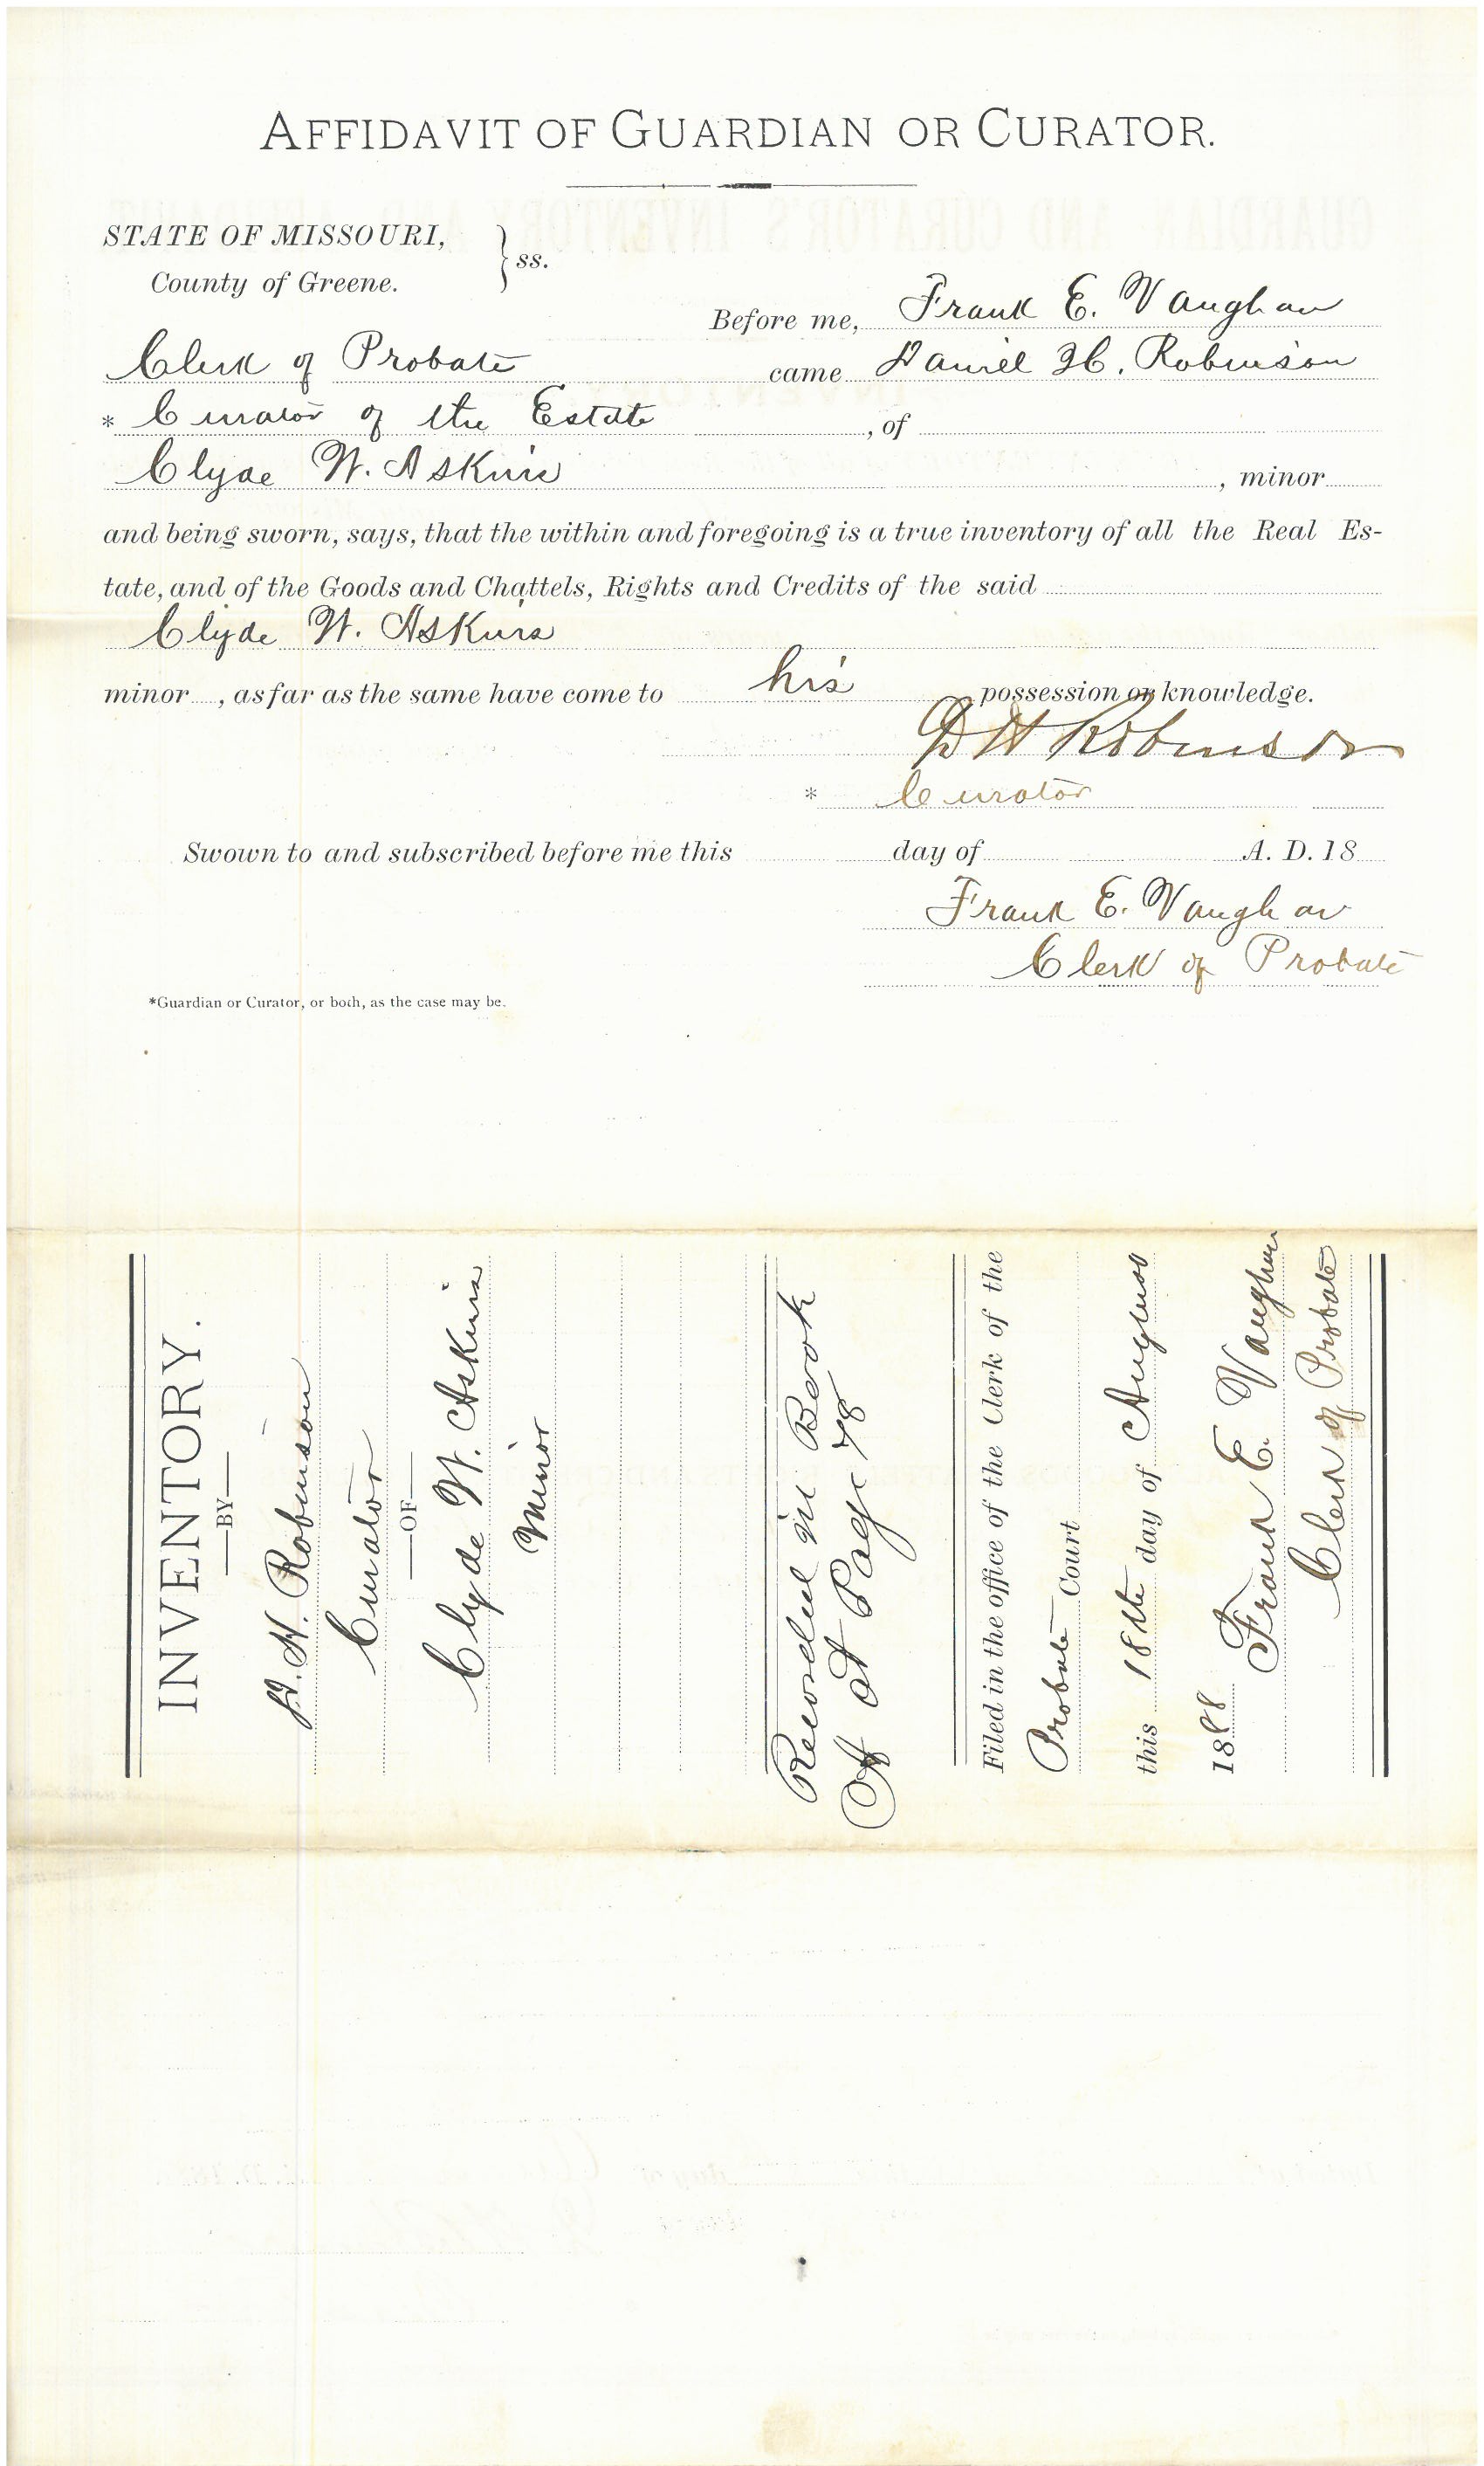 AFFIDAVIT OF GUARDIAN OR CURATOR.
STATE OF MISSOURI,
County of Greene. } ss.
Before me, Frank E. Vaughan
Clerk of Probate came Daniel H. Robinson
* Curator of the Estate , of
Clyde W. Askins , minor
and being sworn, says, that the within and foregoing is a true inventory of all the Real Es-
tate, and of the Goods and Chattels, Rights and Credits of the said
Clyde W. Askins
minor , as far as the same have come to his possession or knowledge.
D H Robinson
* Curator
Swown to and subscribed before me this day of A. D. 18
Frank E. Vaughan
Clerk of Probate
*Guardian or Curator, or both, as the case may be.
INVENTORY.
—BY—
D. H. Robinson
Curator
—OF—
Clyde W. Askins
Minor
Recorded in Book
A at Page 78
Filed in the office of the Clerk of the
Probate Court
this 18th day of August
1888
Frank E. Vaughan
Clerk of Probate